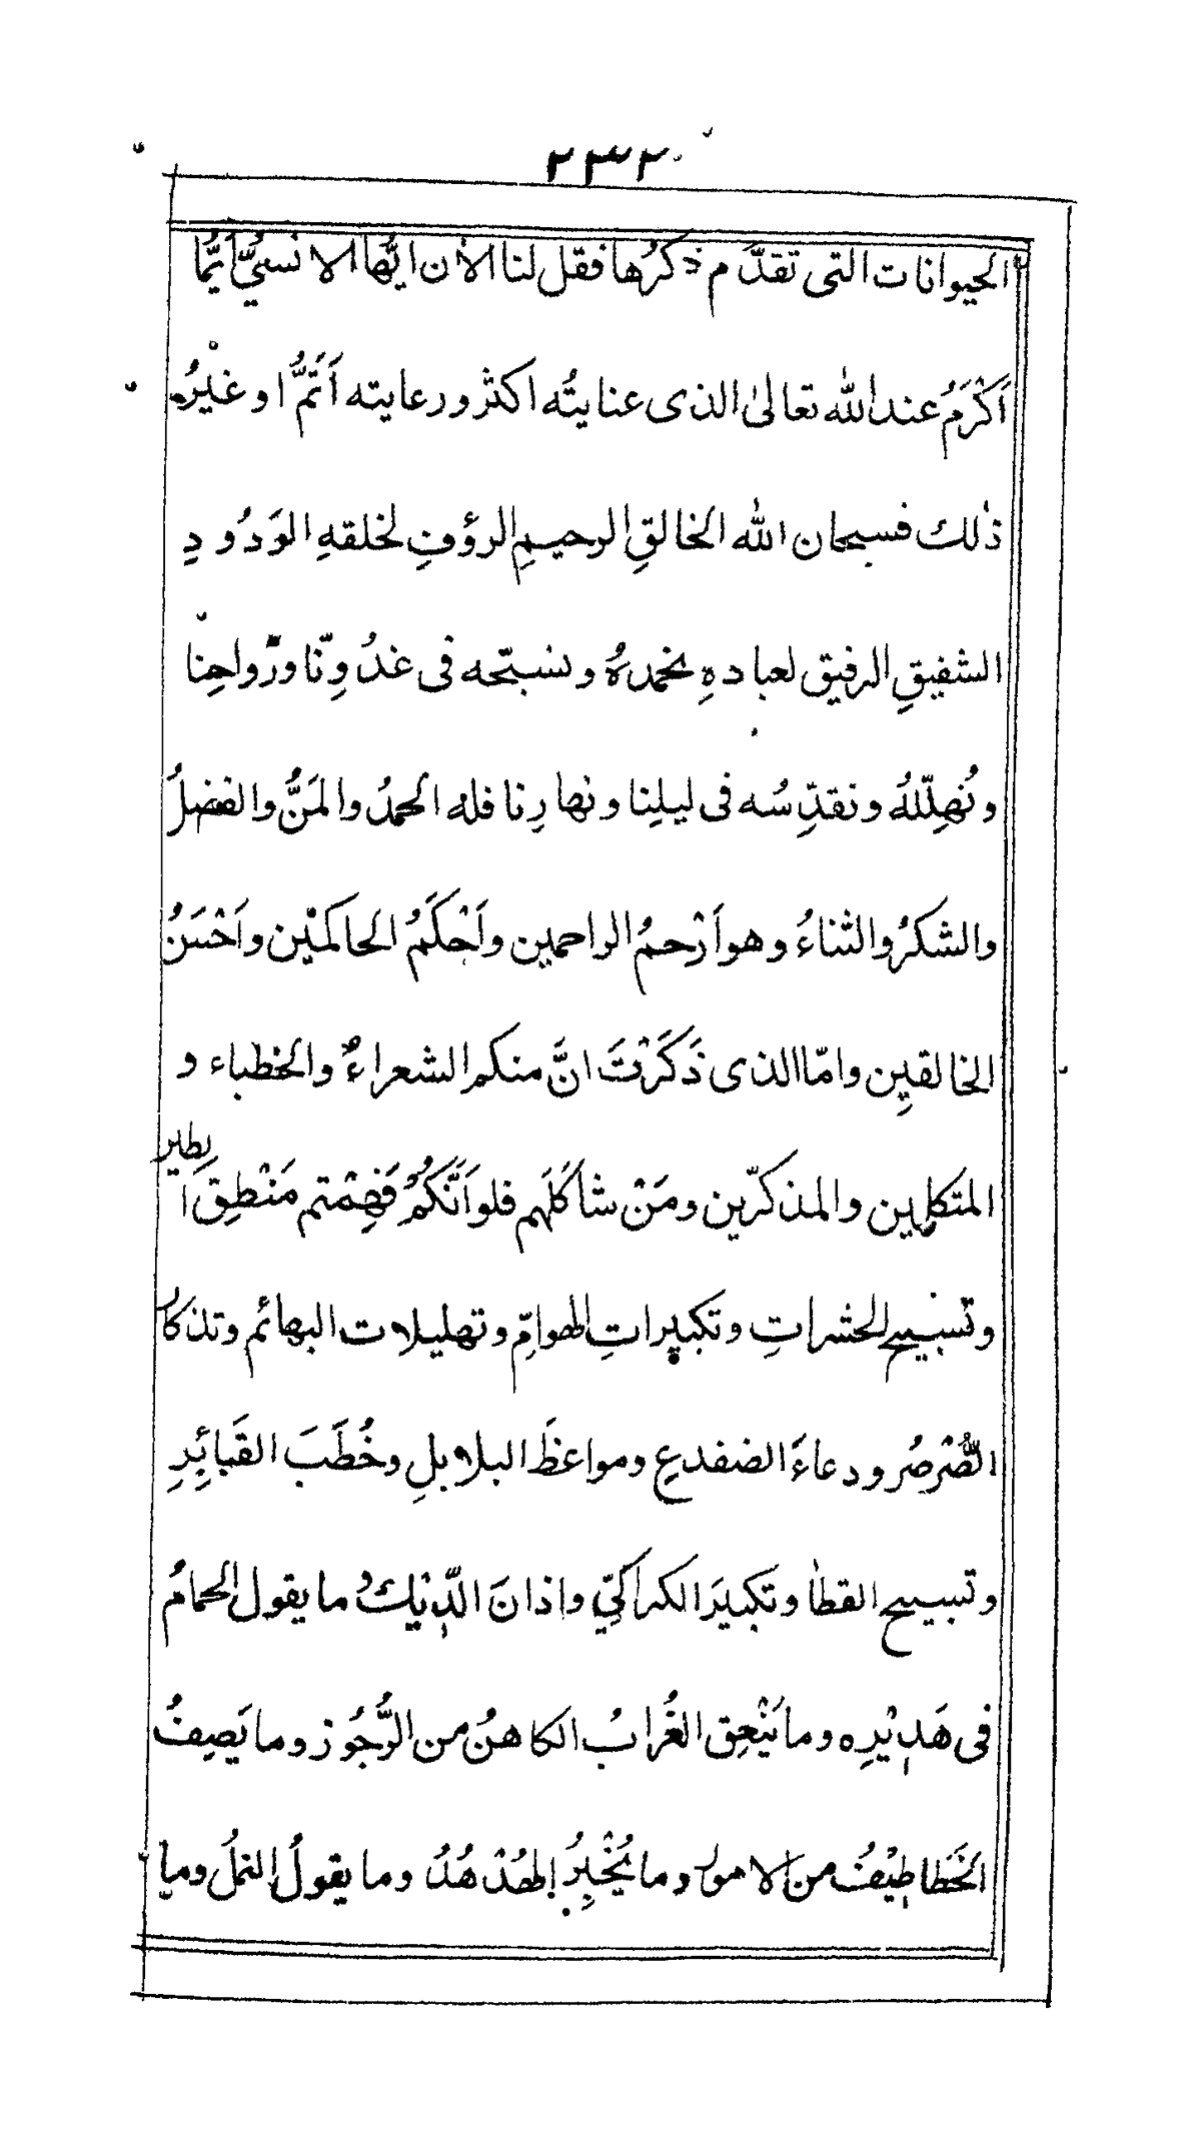 ٢٣٢
الحيوانات التى تقدَّم ذكرُها فقل لنا الأن ايُّها الانسىُّ اَيُّما
اَكْرَمُ عند الله تعالىٰ الذى عنايتُه اكثر ورعايته اَتَمُّ او غيْرُ
ذٰلك فسبحان الله الخالقِ الرحيمِ الرؤفِ لخلقهِ الوَدُودِ
الشفيقِ الرفيق لعبادهِ نحمدهُ ونسبّحه فى غدُوِّنا ورَواحِنا
ونُهلِّلهُ ونقدِّسُه فى ليلِنا ونهارِنا فله الحمدُ والمَنُّ والفضلُ
والشكرُ والثناءُ وهو اَرْحمُ الراحمين واَحْكَمُ الحاكمْين واَحْسَنُ
الخالقِين وامّا الذى ذَكَرْتَ انَّ منكم الشعراءُ والخطباء و
المتكلمين والمذكّرين ومَنْ شاكَلَهم فلو اَنَّكمُ فَهِمْتم مَنْطِقَ الطير
وتسْبيح الحشراتِ وتكبيراتِ الهوامِّ وتهليلات البهائم وتذكار
الصُّرْصُر ودعاءَ الضفدعِ ومواعظَ البلابلِ وخُطَبَ القَبائِرِ
وتسبيح القطاٰ وتكبيرَ الكراكِيّ واذانَ الدِّيْك وما يقول الحمامُ
فى هَدِيْرِه وما يَنْعِق الغُرابُ الكاهنُ من الزُّجُوز وما يَصِفُ
الخَطاطِيْفُ من الامور وما يُخْبِرُ الهُدْهُدُ وما يقولُ النملُ وما